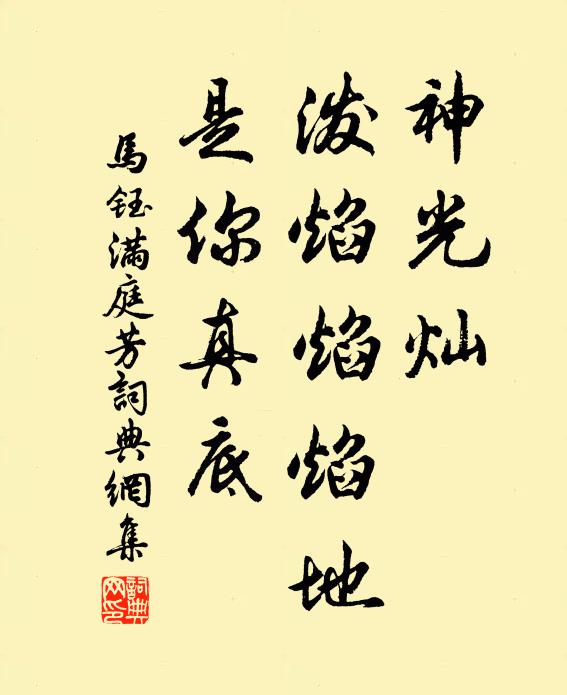 神光灿
泼焰焰焰地
是你真底
馬鈺滿庭芳詞典網集
詞典网印